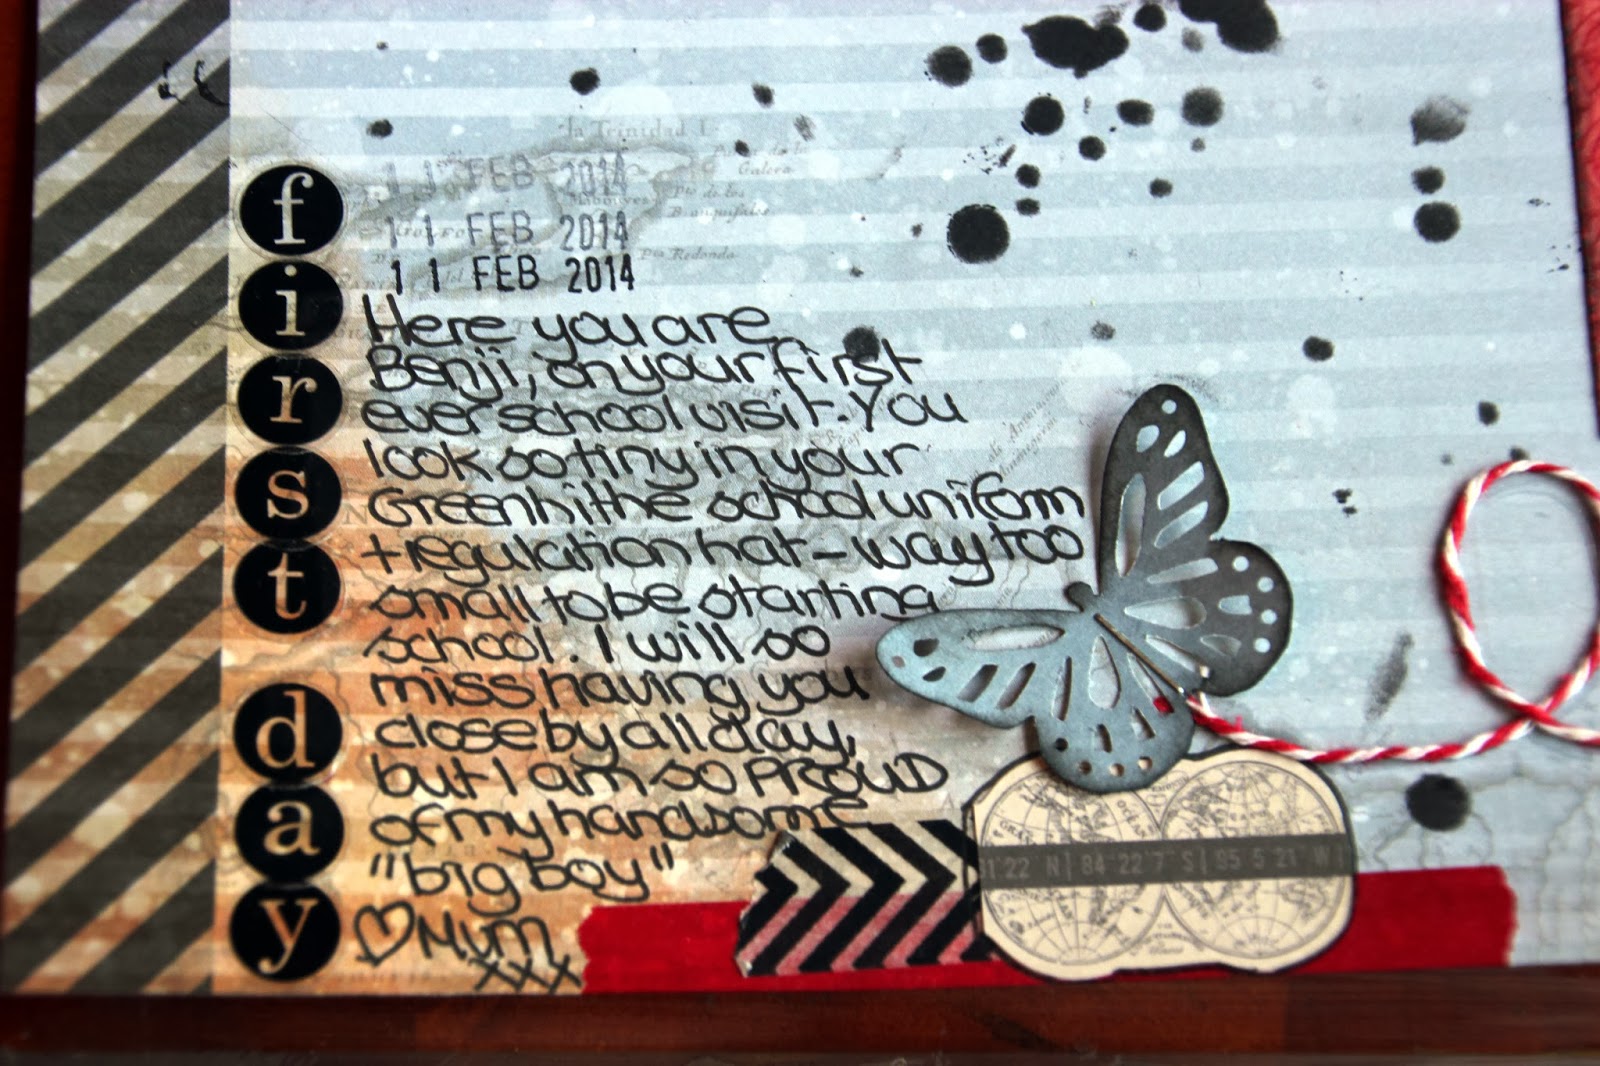 la Trinidad I.
11 FEB 2014
11 FEB 2014
11 FEB 2014
first
day
Here you are
Benji, on your first
ever school visit. You
look so tiny in your
Greenhithe school uniform
+ regulation hat - way too
small to be starting
school. I will so
miss having you
close by all day,
but I am so PROUD
of my handsome
"big boy"
♡ Mum
xxx
Galera
Pta de los
Pta Redonda
22 N| 84 22 7 S| 95 5 21 W|